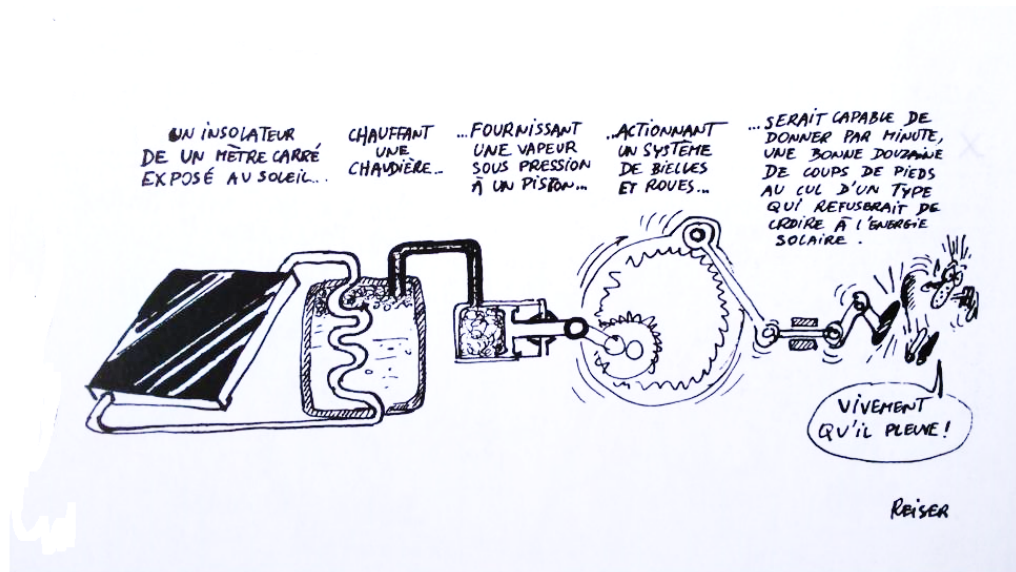 UN INSOLATEUR
DE UN MÈTRE CARRÉ
EXPOSÉ AU SOLEIL...
CHAUFFANT
UNE
CHAUDIÈRE...
...FOURNISSANT
UNE VAPEUR
SOUS PRESSION
À UN PISTON...
...ACTIONNANT
UN SYSTEME
DE BIELLES
ET ROUES...
...SERAIT CAPABLE DE
DONNER PAR MINUTE,
UNE BONNE DOUZAINE
DE COUPS DE PIEDS
AU CUL D'UN TYPE
QUI REFUSERAIT DE
CROIRE À L'ENERGIE
SOLAIRE.
VIVEMENT
QU'IL PLEUVE!
REISER